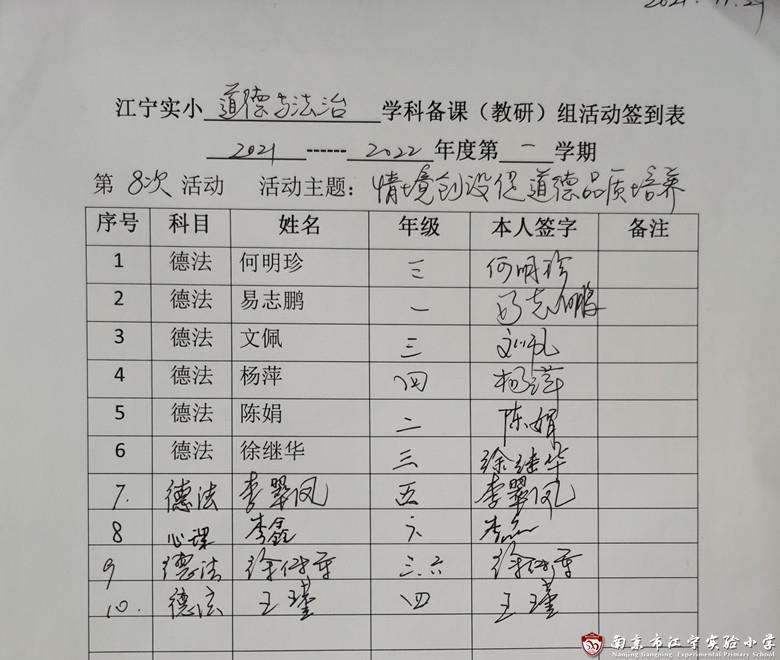 2021.11.29
江宁实小 道德与法治 学科备课（教研）组活动签到表
2021 ------ 2022 年度第 一 学期
第 8次 活动 活动主题：情境创设促道德品质培养
序号 科目 姓名 年级 本人签字 备注
1 德法 何明珍 三 何明珍
2 德法 易志鹏 一 易志鹏
3 德法 文佩 三
4 德法 杨萍 四 杨萍
5 德法 陈娟 二 陈娟
6 德法 徐继华 三 徐继华
7. 德法 李翠凤 五 李翠凤
8 心课 李鑫 六 李鑫
9 德法 三.六
10. 德法 王瑾 四 王瑾
南京市江宁实验小学
Nanjing Jiangning Experimental Primary School